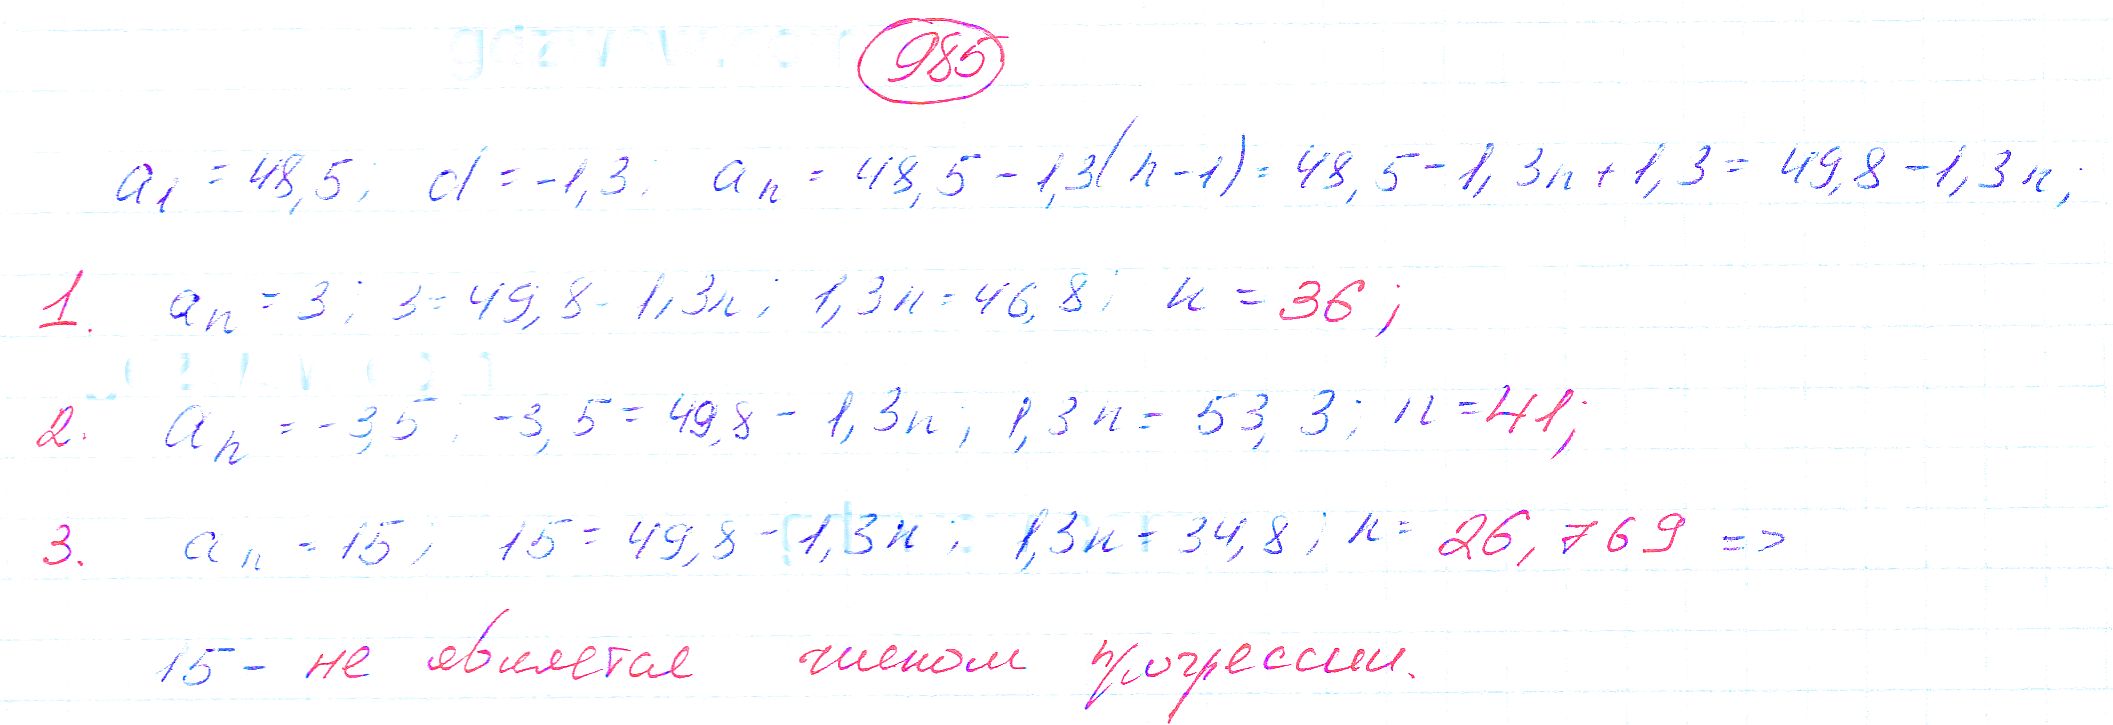 985
a₁ = 48,5; d = -1,3; aₙ = 48,5 - 1,3(n-1) = 48,5 - 1,3n + 1,3 = 49,8 - 1,3n;
1. aₙ = 3; 3 = 49,8 - 1,3n; 1,3n = 46,8; n = 36;
2. aₙ = -3,5; -3,5 = 49,8 - 1,3n; 1,3n = 53,3; n = 41;
3. aₙ = 15; 15 = 49,8 - 1,3n; 1,3n = 34,8; n = 26,769 =>
15 - не является членом прогрессии.